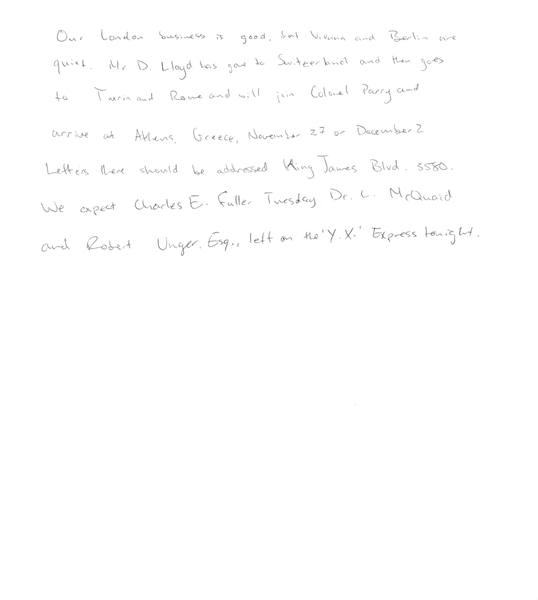 Our London business is good, but Vienna and Berlin are
quiet. Mr D. Lloyd has gone to Switzerland and then goes
to Turin and Rome and will join Colonel Parry and
arrive at Athens, Greece, November 27 or December 2
Letters there should be addressed King James Blvd. 3580.
We expect Charles E. Fuller Tuesday Dr. L. McQuaid
and Robert Unger, Esq., left on the 'Y.X.' Express tonight.